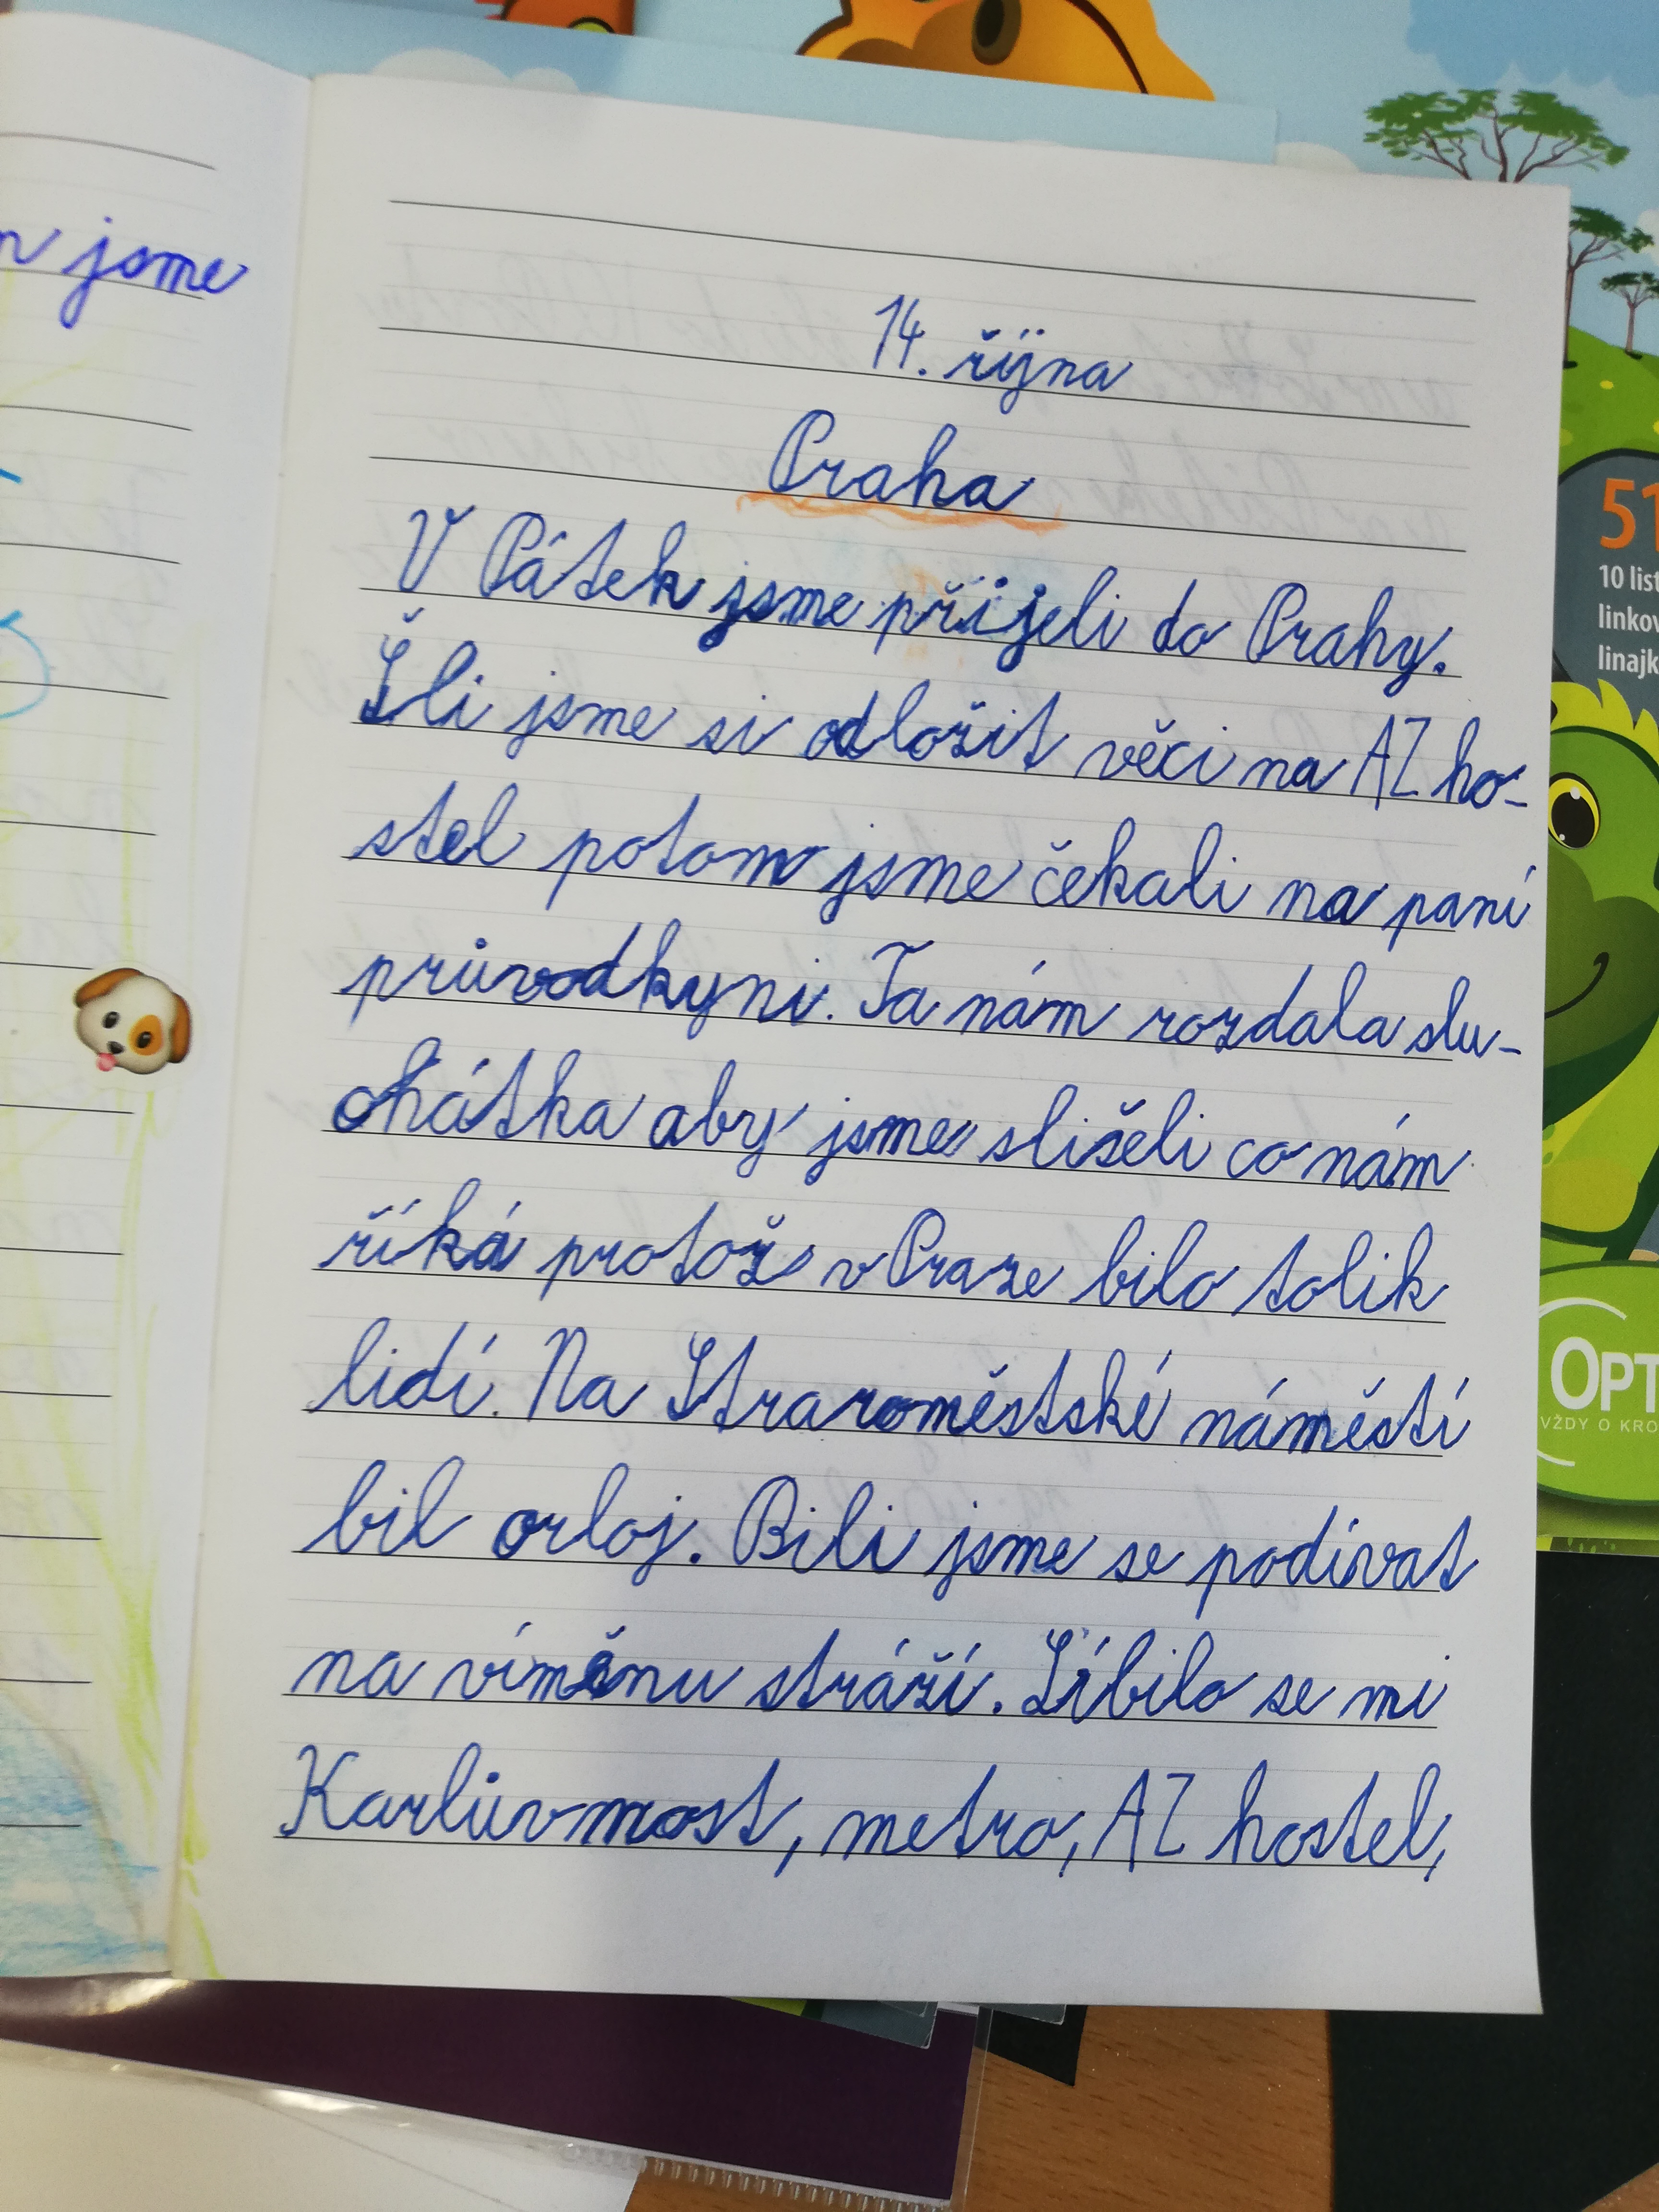 n jsme
14. října
Praha
V Pátek jsme přijeli do Prahy.
Šli jsme si odložit věci na AZ ho-
stel potom jsme čekali na paní
průvodkyni. Ta nám rozdala slu-
chátka aby jsme slišeli co nám
říká protož v Praze bilo tolik
lidí. Na Straroměstské náměstí
bil orloj. Bili jsme se podívat
na víměnu stráží. Líbilo se mi
Karlův most, metro, AZ hostel,
51
10 list
linkov
linajk
OPT
VŽDY O KRO